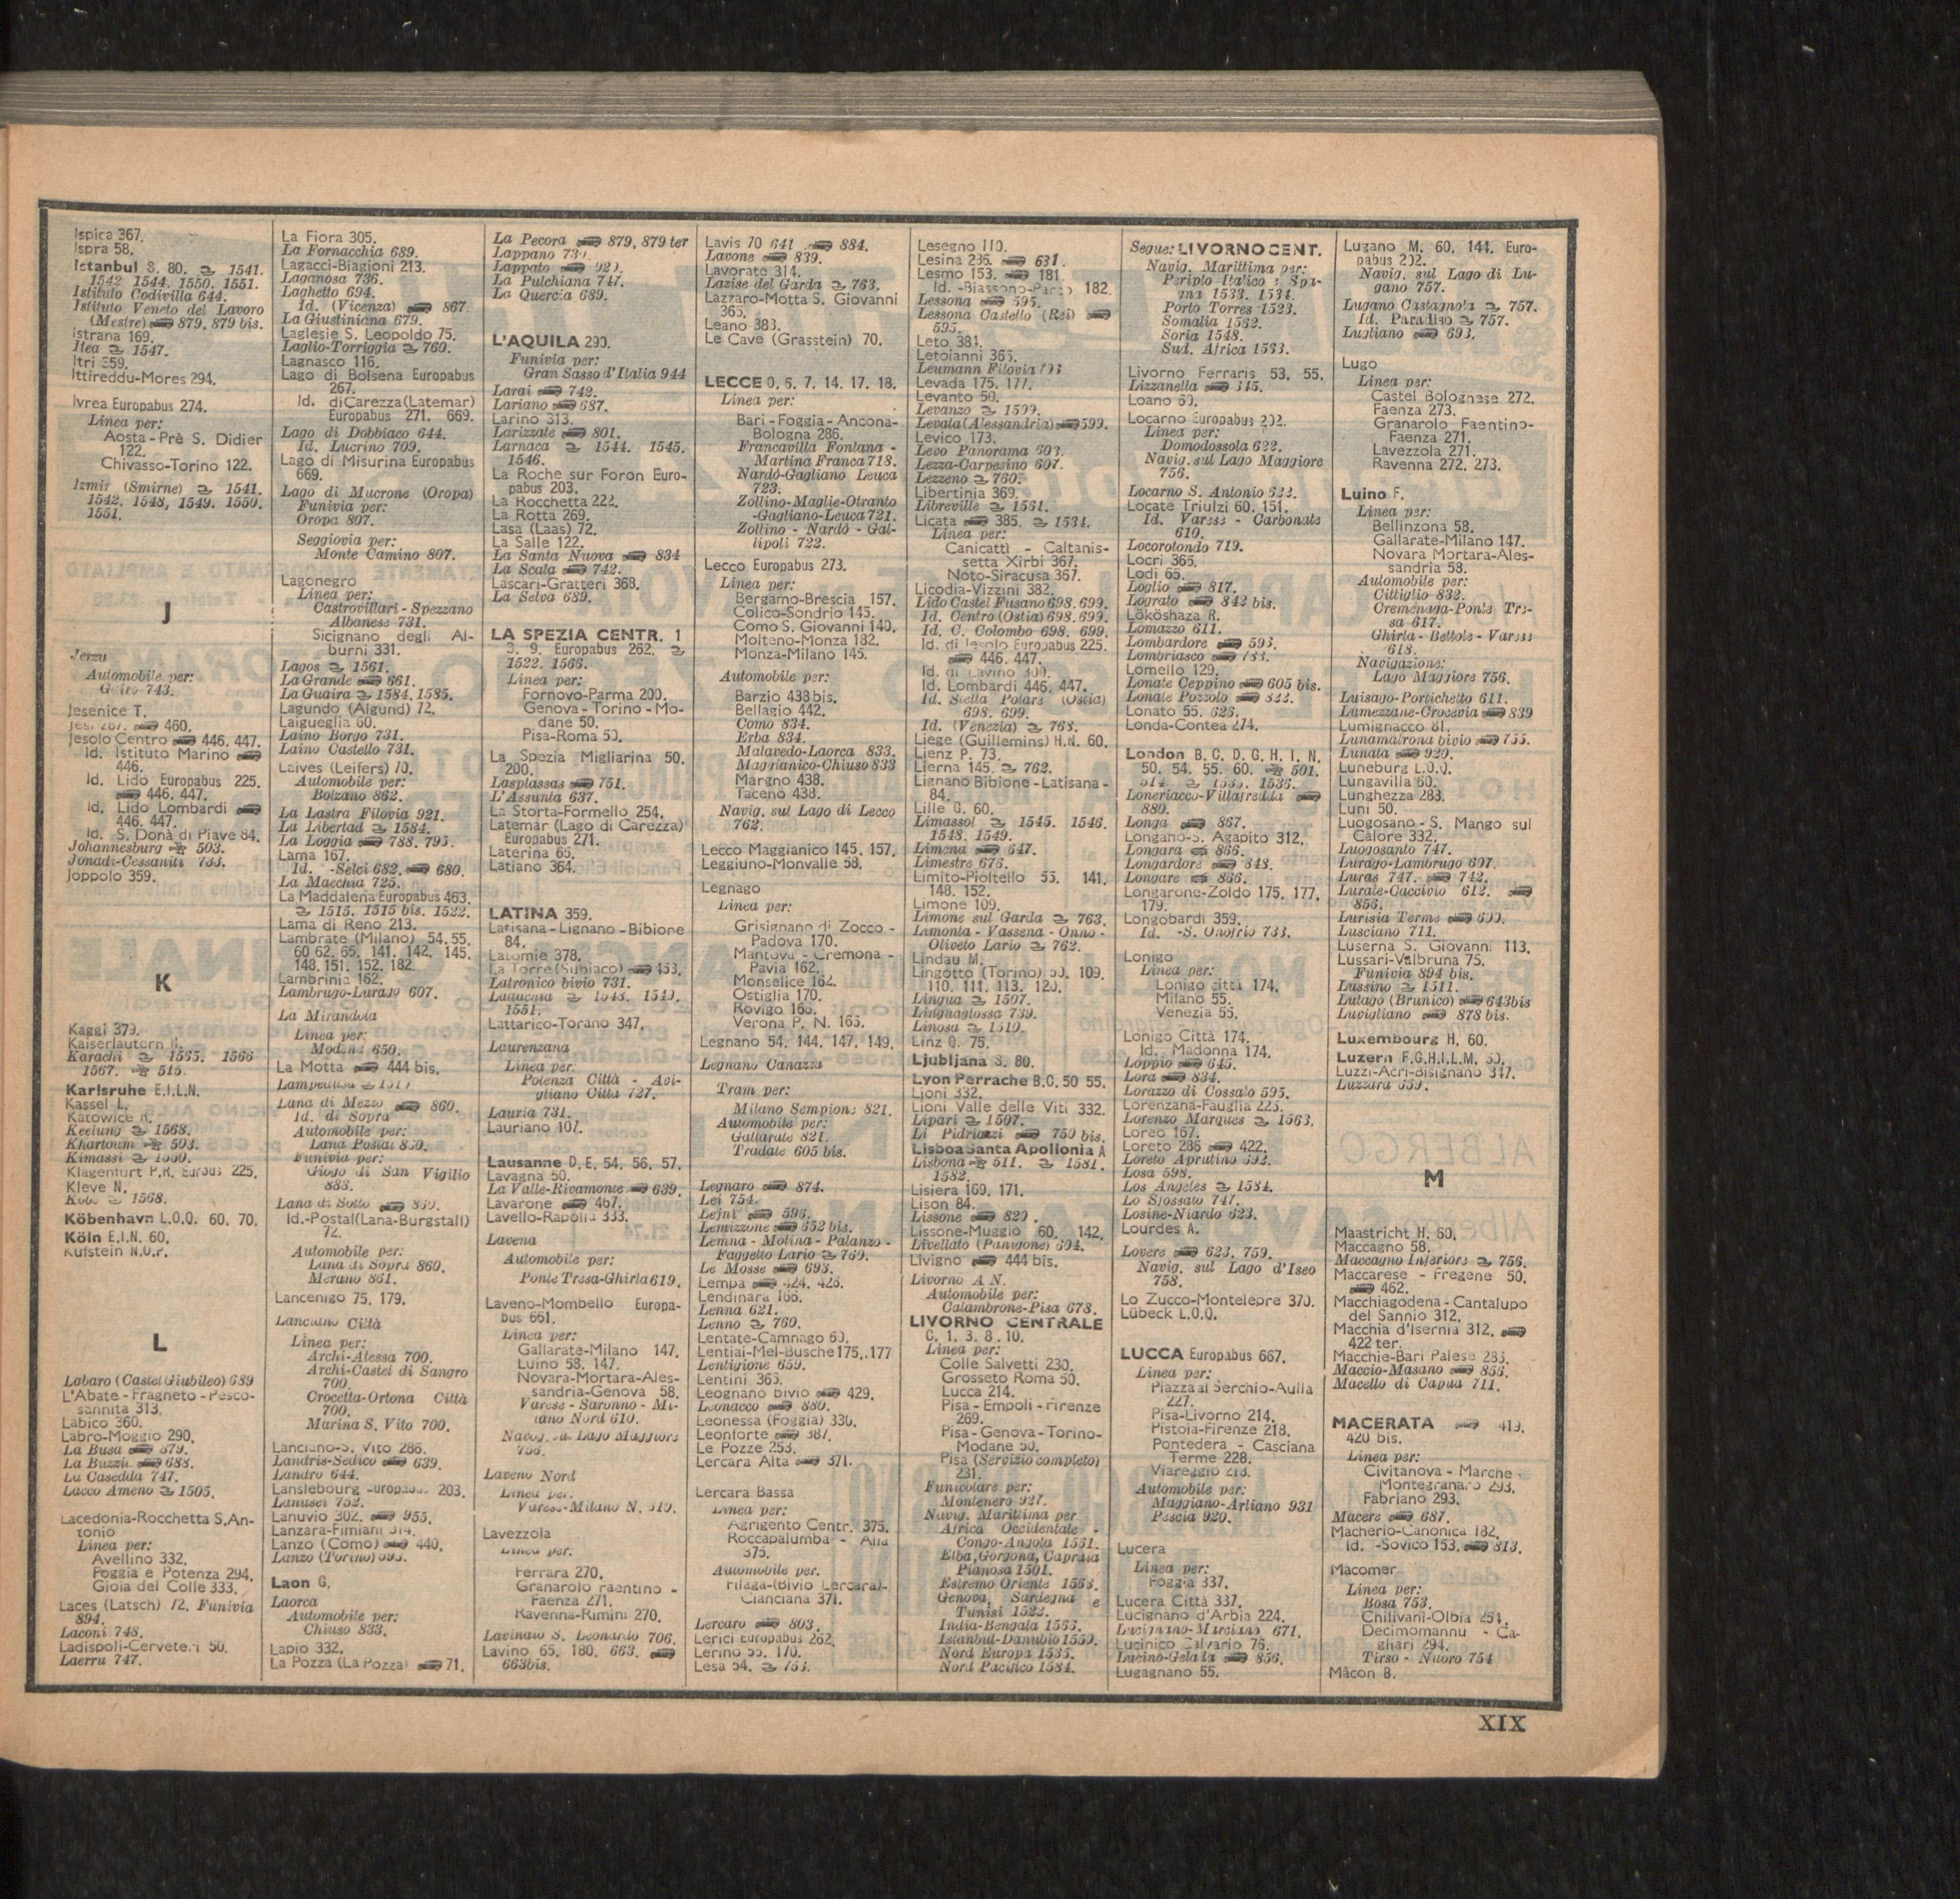 Ispica 367.
Ispra 58.
Istanbul S. 80. 1541.
1542 1544. 1550. 1551.
Istituto Codivilla 644.
Istituto Veneto del Lavoro
(Mestre) 879. 879 bis.
Istrana 169.
Itea 1547.
Itri 359.
Ittireddu-Mores 294.
Ivrea Europabus 274.
Linea per:
Aosta - Prè S. Didier
122.
Chivasso-Torino 122.
Izmir (Smirne) 1541.
1542. 1548, 1549. 1550.
1551.
J
Jerzu
Automobile per:
743.
Jesenice T.
Jesi 460.
Jesolo Centro 446. 447.
Id. Istituto Marino
446.
Id. Lido Europabus 225.
446. 447.
Id. Lido Lombardi
446. 447.
Id. S. Donà di Piave 84.
Johannesburg 503.
Jonadi-Cessaniti 733.
Joppolo 359.
K
Kaggi 379.
Kaiserlautern H.
Karachi 1565. 1566
1567. 515.
Karlsruhe E.I.L.N.
Kassel L.
Katowice R.
Keelung 1568.
Khartoum 503.
Kimassi 1550.
Klagenfurt P.R. Eurobus 225.
Kleve N.
Kobe 1568.
Köbenhavn L.O.Q. 60. 70.
Köln E.I.N. 60.
Kufstein N.O.P.
L
Labaro (Castel Giubileo) 689
L'Abate - Fragneto - Pesco-
sannita 313.
Labico 360.
Labro-Moggio 290.
La Busa 879.
La Buzzia 688.
La Casedda 747.
Lacco Ameno 1505.
Lacedonia-Rocchetta S.An-
tonio
Linea per:
Avellino 332.
Foggia e Potenza 294.
Gioia del Colle 333.
Laces (Latsch) 72. Funivia
894.
Laconi 748.
Ladispoli-Cerveteri 50.
Laerru 747.
La Fiora 305.
La Fornacchia 689.
Lagacci-Biagioni 213.
Laganosa 736.
Laghetto 694.
Id. (Vicenza) 867.
La Giustiniana 679.
Laglesie S. Leopoldo 75.
Laglio-Torriggia 760.
Lagnasco 116.
Lago di Bolsena Europabus
267.
Id. di Carezza (Latemar)
Europabus 271. 669.
Lago di Dobbiaco 644.
Id. Lucrino 709.
Lago di Misurina Europabus
669.
Lago di Mucrone (Oropa)
Funivia per:
Oropa 807.
Seggiovia per:
Monte Camino 807.
Lagonegro
Linea per:
Castrovillari - Spezzano
Albanese 731.
Sicignano degli Al-
burni 331.
Lagos 1561.
La Grande 661.
La Guaira 1584. 1585.
Lagundo (Algund) 72.
Laigueglia 60.
Laino Borgo 731.
Laino Castello 731.
Laives (Leifers) 70.
Automobile per:
Bolzano 862.
La Lastra Filovia 921.
La Libertad 1584.
La Loggia 788. 795.
Lama 167.
Id. -Selci 682. 680.
La Macchia 725.
La Maddalena Europabus 463.
1515. 1515 bis. 1522.
Lama di Reno 213.
Lambrate (Milano) 54. 55.
60 62. 65. 141. 142. 145.
148. 151. 152. 182.
Lambrinia 162.
Lambrugo-Lurago 607.
La Mirandola
Linea per:
Modena 650.
La Motta 444 bis.
Lampedusa
Lana di Mezzo 860.
Id. di Sopra
Automobile per:
Lana Postal 860.
Funivia per:
Giogo di San Vigilio
883.
Lana di Sotto 860.
Id.-Postal (Lana-Burgstall)
72.
Automobile per:
Lana di Sopra 860.
Merano 861.
Lancenigo 75, 179.
Lanciano Città
Linea per:
Archi-Atessa 700.
Archi-Castel di Sangro
700.
Crocetta-Ortona Città
700.
Marina S. Vito 700.
Lanciano-S. Vito 286.
Landris-Sedico 639.
Landro 644.
Lanslebourg Europabus 203.
Lanusei 752.
Lanuvio 302. 955.
Lanzara-Fimiani 314.
Lanzo (Como) 440.
Lanzo (Torino) 593.
Laon G.
Laorca
Automobile per:
Chiuso 833.
Lapio 332.
La Pozza (La Pozza) 71.
La Pecora 879, 879 ter
Lappano
Lappato 920.
La Pulchiana 747.
La Quercia 689.
L'AQUILA 290.
Funivia per:
Gran Sasso d'Italia 944
Larai 742.
Lariano 687.
Larino 313.
Larizzate 801.
Larnaca 1544. 1545.
1546.
La Roche sur Foron Euro-
pabus 203.
La Rocchetta 222.
La Rotta 269.
Lasa (Laas) 72.
La Salle 122.
La Santa Nuova 834
La Scala 742.
Lascari-Gratteri 368.
La Selva 689.
LA SPEZIA CENTR. 1
3. 9. Europabus 262.
1522. 1566.
Linea per:
Fornovo-Parma 200.
Genova - Torino - Mo-
dane 50.
Pisa-Roma 50.
La Spezia Migliarina 50.
200.
Lasplassas 751.
L'Assunta 637.
La Storta-Formello 254.
Latemar (Lago di Carezza)
Europabus 271.
Laterina 65.
Latiano 364.
LATINA 359.
Latisana - Lignano - Bibione
84.
Latomie 378.
La Torre (Subiaco) 453.
Latronico bivio 731.
Lattachia 1548. 1549.
1551.
Lattarico-Torano 347.
Laurenzana
Linea per:
Potenza Città - Avi-
gliano Città 727.
Lauria 731.
Lauriano 107.
Lausanne D. E. 54. 56. 57.
Lavagna 50.
La Valle-Rivamonte 639.
Lavarone 467.
Lavello-Rapolla 333.
Lavena
Automobile per:
Ponte Tresa-Ghirla 619.
Laveno-Mombello Europa-
bus 661.
Linea per:
Gallarate-Milano 147.
Luino 58. 147.
Novara-Mortara-Ales-
sandria-Genova 58.
Varese - Saronno - Mi-
lano Nord 610.
Navig. sul Lago Maggiore
756.
Laveno Nord
Linea per:
Varese-Milano N. 610.
Lavezzola
Linea per:
Ferrara 270.
Granarolo Faentino -
Faenza 271.
Ravenna-Rimini 270.
Lavinaio S. Leonardo 706.
Lavino 65. 180. 663.
663bis.
Lavis 70 641 884.
Lavone 839.
Lavorate 314.
Lazise del Garda 763.
Lazzaro-Motta S. Giovanni
365.
Leano 383.
Le Cave (Grasstein) 70.
LECCE 0. 6. 7. 14. 17. 18.
Linea per:
Bari - Foggia - Ancona-
Bologna 286.
Francavilla Fontana -
Martina Franca 718.
Nardò-Gagliano Leuca
723.
Zollino-Maglie-Otranto
-Gagliano-Leuca 721.
Zollino - Nardò - Gal-
lipoli 722.
Lecco Europabus 273.
Linea per:
Bergamo-Brescia 157.
Colico-Sondrio 145.
Como S. Giovanni 140.
Molteno-Monza 182.
Monza-Milano 145.
Automobile per:
Barzio 438bis.
Bellagio 442.
Como 834.
Erba 834.
Malavedo-Laorca 833.
Maggianico-Chiuso 833
Margno 438.
Taceno 438.
Navig. sul Lago di Lecco
762.
Lecco Maggianico 145. 157.
Leggiuno-Monvalle 58.
Legnago
Linea per:
Grisignano di Zocco -
Padova 170.
Mantova - Cremona -
Pavia 162.
Monselice 162.
Ostiglia 170.
Rovigo 166.
Verona P. N. 165.
Legnano 54. 144. 147. 149.
Legnano Canazza
Tram per:
Milano Sempione 821.
Automobile per:
Gallarate 821.
Tradate 605 bis.
Legnaro 874.
Lei 754.
Lejni 596.
Lemizzone 652 bis.
Lemna - Molina - Palanzo -
Faggetto Lario 760.
Le Mosse 693.
Lempa 424. 426.
Lendinara 166.
Lenna 621.
Lenno 760.
Lentate-Camnago 60.
Lentiai-Mel-Busche 175. 177
Lentigione 659.
Lentini 365.
Leognano bivio 429.
Leonacco 880.
Leonessa (Foggia) 330.
Leonforte 387.
Le Pozze 253.
Lercara Alta 371.
Lercara Bassa
Linea per:
Agrigento Centr. 375.
Roccapalumba - Alia
375.
Automobile per:
Filaga-(Bivio Lercara)-
Cianciana 371.
Lercaro 803.
Lerici Europabus 262.
Lerino 55. 170.
Lesa 54. 755.
Lesegno 110.
Lesina 286. 631.
Lesmo 153. 181.
Id. -Biassono-Parco 182.
Lessona 595.
Lessona Castello (Rei)
595.
Leto 381.
Letoianni 365.
Leumann Filovia 793
Levada 175. 177.
Levanto 50.
Levanzo 1509.
Levata (Alessandria) 599.
Levico 173.
Levo Panorama 603.
Lezza-Carpesino 607.
Lezzeno 760.
Libertinia 369.
Libreville 1561.
Licata 385. 1534.
Linea per:
Canicattì - Caltanis-
setta Xirbi 367.
Noto-Siracusa 367.
Licodia-Vizzini 382.
Lido Castel Fusano 698. 699.
Id. Centro (Ostia) 698. 699.
Id. C. Colombo 698. 699.
Id. di Jesolo Europabus 225.
446. 447.
Id. di Lavino 309.
Id. Lombardi 446. 447.
Id. Stella Polare (Ostia)
698. 699.
Id. (Venezia) 768.
Liege (Guillemins) H.N. 60.
Lienz P. 73.
Lierna 145. 762.
Lignano Bibione - Latisana -
84.
Lille G. 60.
Limassol 1545. 1546.
1548. 1549.
Limena 647.
Limestre 676.
Limito-Pioltello 55. 141.
148. 152.
Limone 109.
Limone sul Garda 763.
Limonta - Vassena - Onno -
Oliveto Lario 762.
Lindau M.
Lingotto (Torino) 50. 109.
110. 111. 113. 120.
Lingua 1507.
Linguaglossa 739.
Linosa 1510.
Linz Q. 75.
Ljubljana S. 80.
Lyon Perrache B.C. 50 55.
Lioni 332.
Lioni Valle delle Viti 332.
Lipari 1507.
Li Pidriazzi 750 bis.
Lisboa Santa Apollonia A
Lisbona 511. 1581.
1582.
Lisiera 169. 171.
Lison 84.
Lissone 820.
Lissone-Muggio 60. 142.
Livellato (Panigone) 604.
Livigno 444 bis.
Livorno A N.
Automobile per:
Calambrone-Pisa 678.
LIVORNO CENTRALE
C. 1. 3. 8. 10.
Linea per:
Colle Salvetti 230.
Grosseto Roma 50.
Lucca 214.
Pisa - Empoli - Firenze
269.
Pisa - Genova - Torino-
Modane 50.
Pisa (Servizio completo)
231.
Funicolare per:
Montenero 927.
Navig. Marittima per
Africa Occidentale -
Congo-Angola 1561.
Elba, Gorgona, Capraia
Pianosa 1501.
Estremo Oriente 1568.
Genova, Sardegna e
Tunisi 1522.
India-Bengala 1566.
Istanbul-Danubio 1550.
Nord Europa 1535.
Nord Pacifico 1584.
Segue: LIVORNO CENT.
Navig. Marittima per:
Periplo Italico e Spa-
gna 1533. 1534.
Porto Torres 1523.
Somalia 1562.
Soria 1548.
Sud. Africa 1563.
Livorno Ferraris 53. 55.
Lizzanella 845.
Loano 60.
Locarno Europabus 202.
Linea per:
Domodossola 622.
Navig. sul Lago Maggiore
756.
Locarno S. Antonio 622.
Locate Triulzi 60. 151.
Id. Varese - Carbonate
610.
Locorotondo 719.
Locri 365.
Lodi 65.
Loglio 817.
Lograto 842 bis.
Lököshaza R.
Lomazzo 611.
Lombardore 593.
Lombriasco 783.
Lomello 129.
Lonate Ceppino 605 bis.
Lonate Pozzolo 822.
Lonato 55. 626.
Londa-Contea 274.
London B. C. D. G. H. I. N.
50. 54. 55. 60. 501.
514. 1535. 1536.
Loneriacco-Villafredda
880.
Longa 867.
Longano-S. Agapito 312.
Longara 866.
Longardore 848.
Longare 866.
Longarone-Zoldo 175. 177.
179.
Longobardi 359.
Id. -S. Onofrio 733.
Lonigo
Linea per:
Lonigo città 174.
Milano 55.
Venezia 55.
Lonigo Città 174.
Id. Madonna 174.
Loppio 645.
Lora 834.
Lorazzo di Cossato 595.
Lorenzana-Fauglia 223.
Lorenzo Marques 1563.
Loreo 167.
Loreto 286 422.
Loreto Aprutino 692.
Losa 598.
Los Angeles 1584.
Lo Sfossato 747.
Losine-Niardo 623.
Lourdes A.
Lovere 623. 759.
Navig. sul Lago d'Iseo
758.
Lo Zucco-Montelepre 370.
Lübeck L.O.Q.
LUCCA Europabus 667.
Linea per:
Piazza al Serchio-Aulla
227.
Pisa-Livorno 214.
Pistoia-Firenze 218.
Pontedera - Casciana
Terme 228.
Viareggio 218.
Automobile per:
Maggiano-Arliano 931
Pescia 920.
Lucera
Linea per:
Foggia 337.
Lucera Città 337.
Lucignano d'Arbia 224.
Lucignano-Marciano 671.
Lucinico Calvario 76.
Lucino-Gelata 856.
Lugagnano 55.
Lugano M. 60. 144. Euro-
pabus 202.
Navig. sul Lago di Lu-
gano 757.
Lugano Castagnola 757.
Id. Paradiso 757.
Lugliano 693.
Lugo
Linea per:
Castel Bolognese 272.
Faenza 273.
Granarolo Faentino-
Faenza 271.
Lavezzola 271.
Ravenna 272. 273.
Luino F.
Linea per:
Bellinzona 58.
Gallarate-Milano 147.
Novara Mortara-Ales-
sandria 58.
Automobile per:
Cittiglio 832.
Cremenaga-Ponte Tre-
sa 617.
Ghirla - Bettole - Varese
618.
Navigazione:
Lago Maggiore 756.
Luisago-Portichetto 611.
Lumezzane-Crocevia 839
Lumignacco 81.
Lunamatrona bivio 755.
Lunata 920.
Luneburg L.O.Q.
Lungavilla 60.
Lunghezza 283.
Luni 50.
Luogosano - S. Mango sul
Calore 332.
Luogosanto 747.
Lurago-Lambrugo 607.
Luras 747. 742.
Lurate-Caccivio 612.
856.
Lurisia Terme 600.
Lusciano 711.
Luserna S. Giovanni 113.
Lussari-Valbruna 75.
Funivia 894 bis.
Lussino 1511.
Lutago (Brunico) 643bis
Luvigliano 878 bis.
Luxembourg H. 60.
Luzern F.G.H.I.L.M. 60.
Luzzi-Acri-Bisignano 347.
Luzzara 659.
M
Maastricht H. 60.
Maccagno 58.
Maccagno Inferiore 756.
Maccarese - Fregene 50.
462.
Macchiagodena - Cantalupo
del Sannio 312.
Macchia d'Isernia 312.
422 ter.
Macchie-Bari Palese 286.
Maccio-Masano 856.
Macello di Capua 711.
MACERATA 419.
420 bis.
Linea per:
Civitanova - Marche -
Montegranaro 293.
Fabriano 293.
Macere 687.
Macherio-Canonica 182.
Id. -Sovico 153. 813.
Macomer
Linea per:
Bosa 753.
Chilivani-Olbia 294.
Decimomannu - Ca-
gliari 294.
Tirso - Nuoro 754
Mâcon B.
XIX